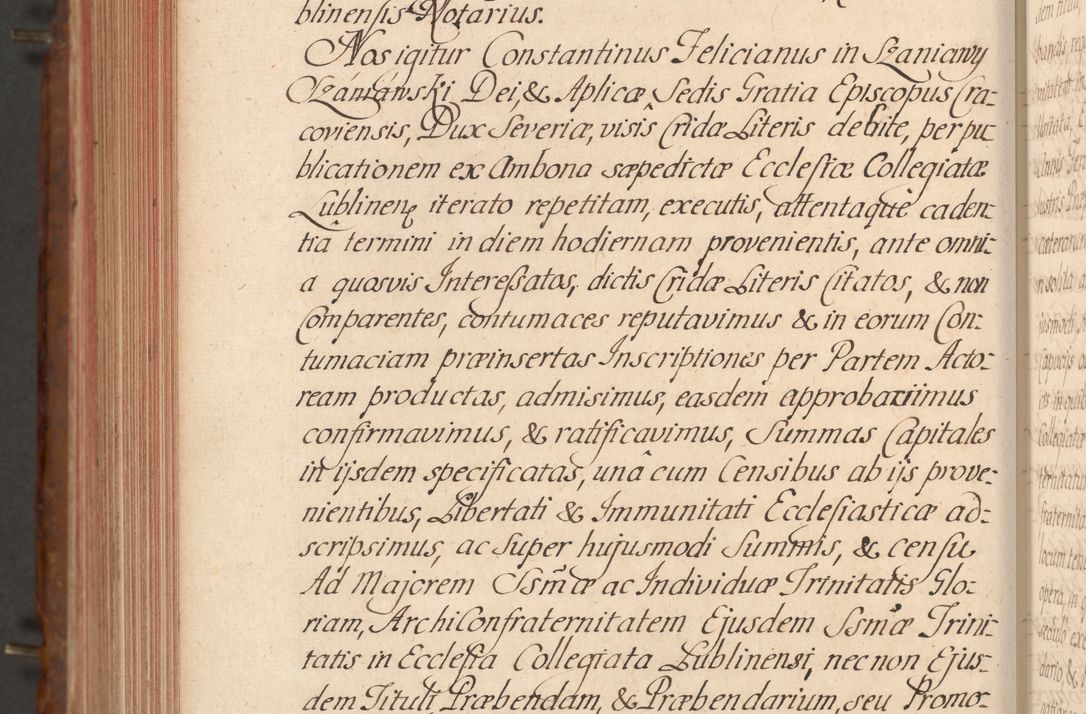 blinensis Notarius.
Nos igitur Constantinus Felicianus in Szaniawy
Szániáwski Dei, & Aplicæ Sedis Gratia Episcopus Cra=
coviensis, Dux Severiæ, visis Cridæ Literis debite, per pu
blicationem ex Ambona sæpedictæ Ecclesiæ Collegiatæ
Lublinenę iterato repetitam, executis, attentaque caden=
tiâ termini in diem hodiernam provenientis, ante omni=
a quosvis Interessatos, dictis Cridæ Literis Citatos, & non
Comparentes, contumaces reputavimus & in eorum Con=
tumaciam præinsertas Inscriptiones per Partem Acto=
ream productas, admisimus, easdem approbavimus
confirmavimus, & ratificavimus, Summas Capitales
in ijsdem specificatas, unâ cum Censibus ab ijs prove=
nientibus, Libertati & Immunitati Ecclesiasticæ ad=
scripsimus, ac super hujusmodi Summis, & censu
Ad Majorem Ssm̃æ ac Individuæ Trinitatis Glo=
riam, ArchiConfraternitatem Ejusdem Ssm̃æ Trini=
tatis in Ecclesia Collegiata Lublinensi, nec non Ejus=
dem Tituli Præbendam, & Præbendarium, seu Promo=